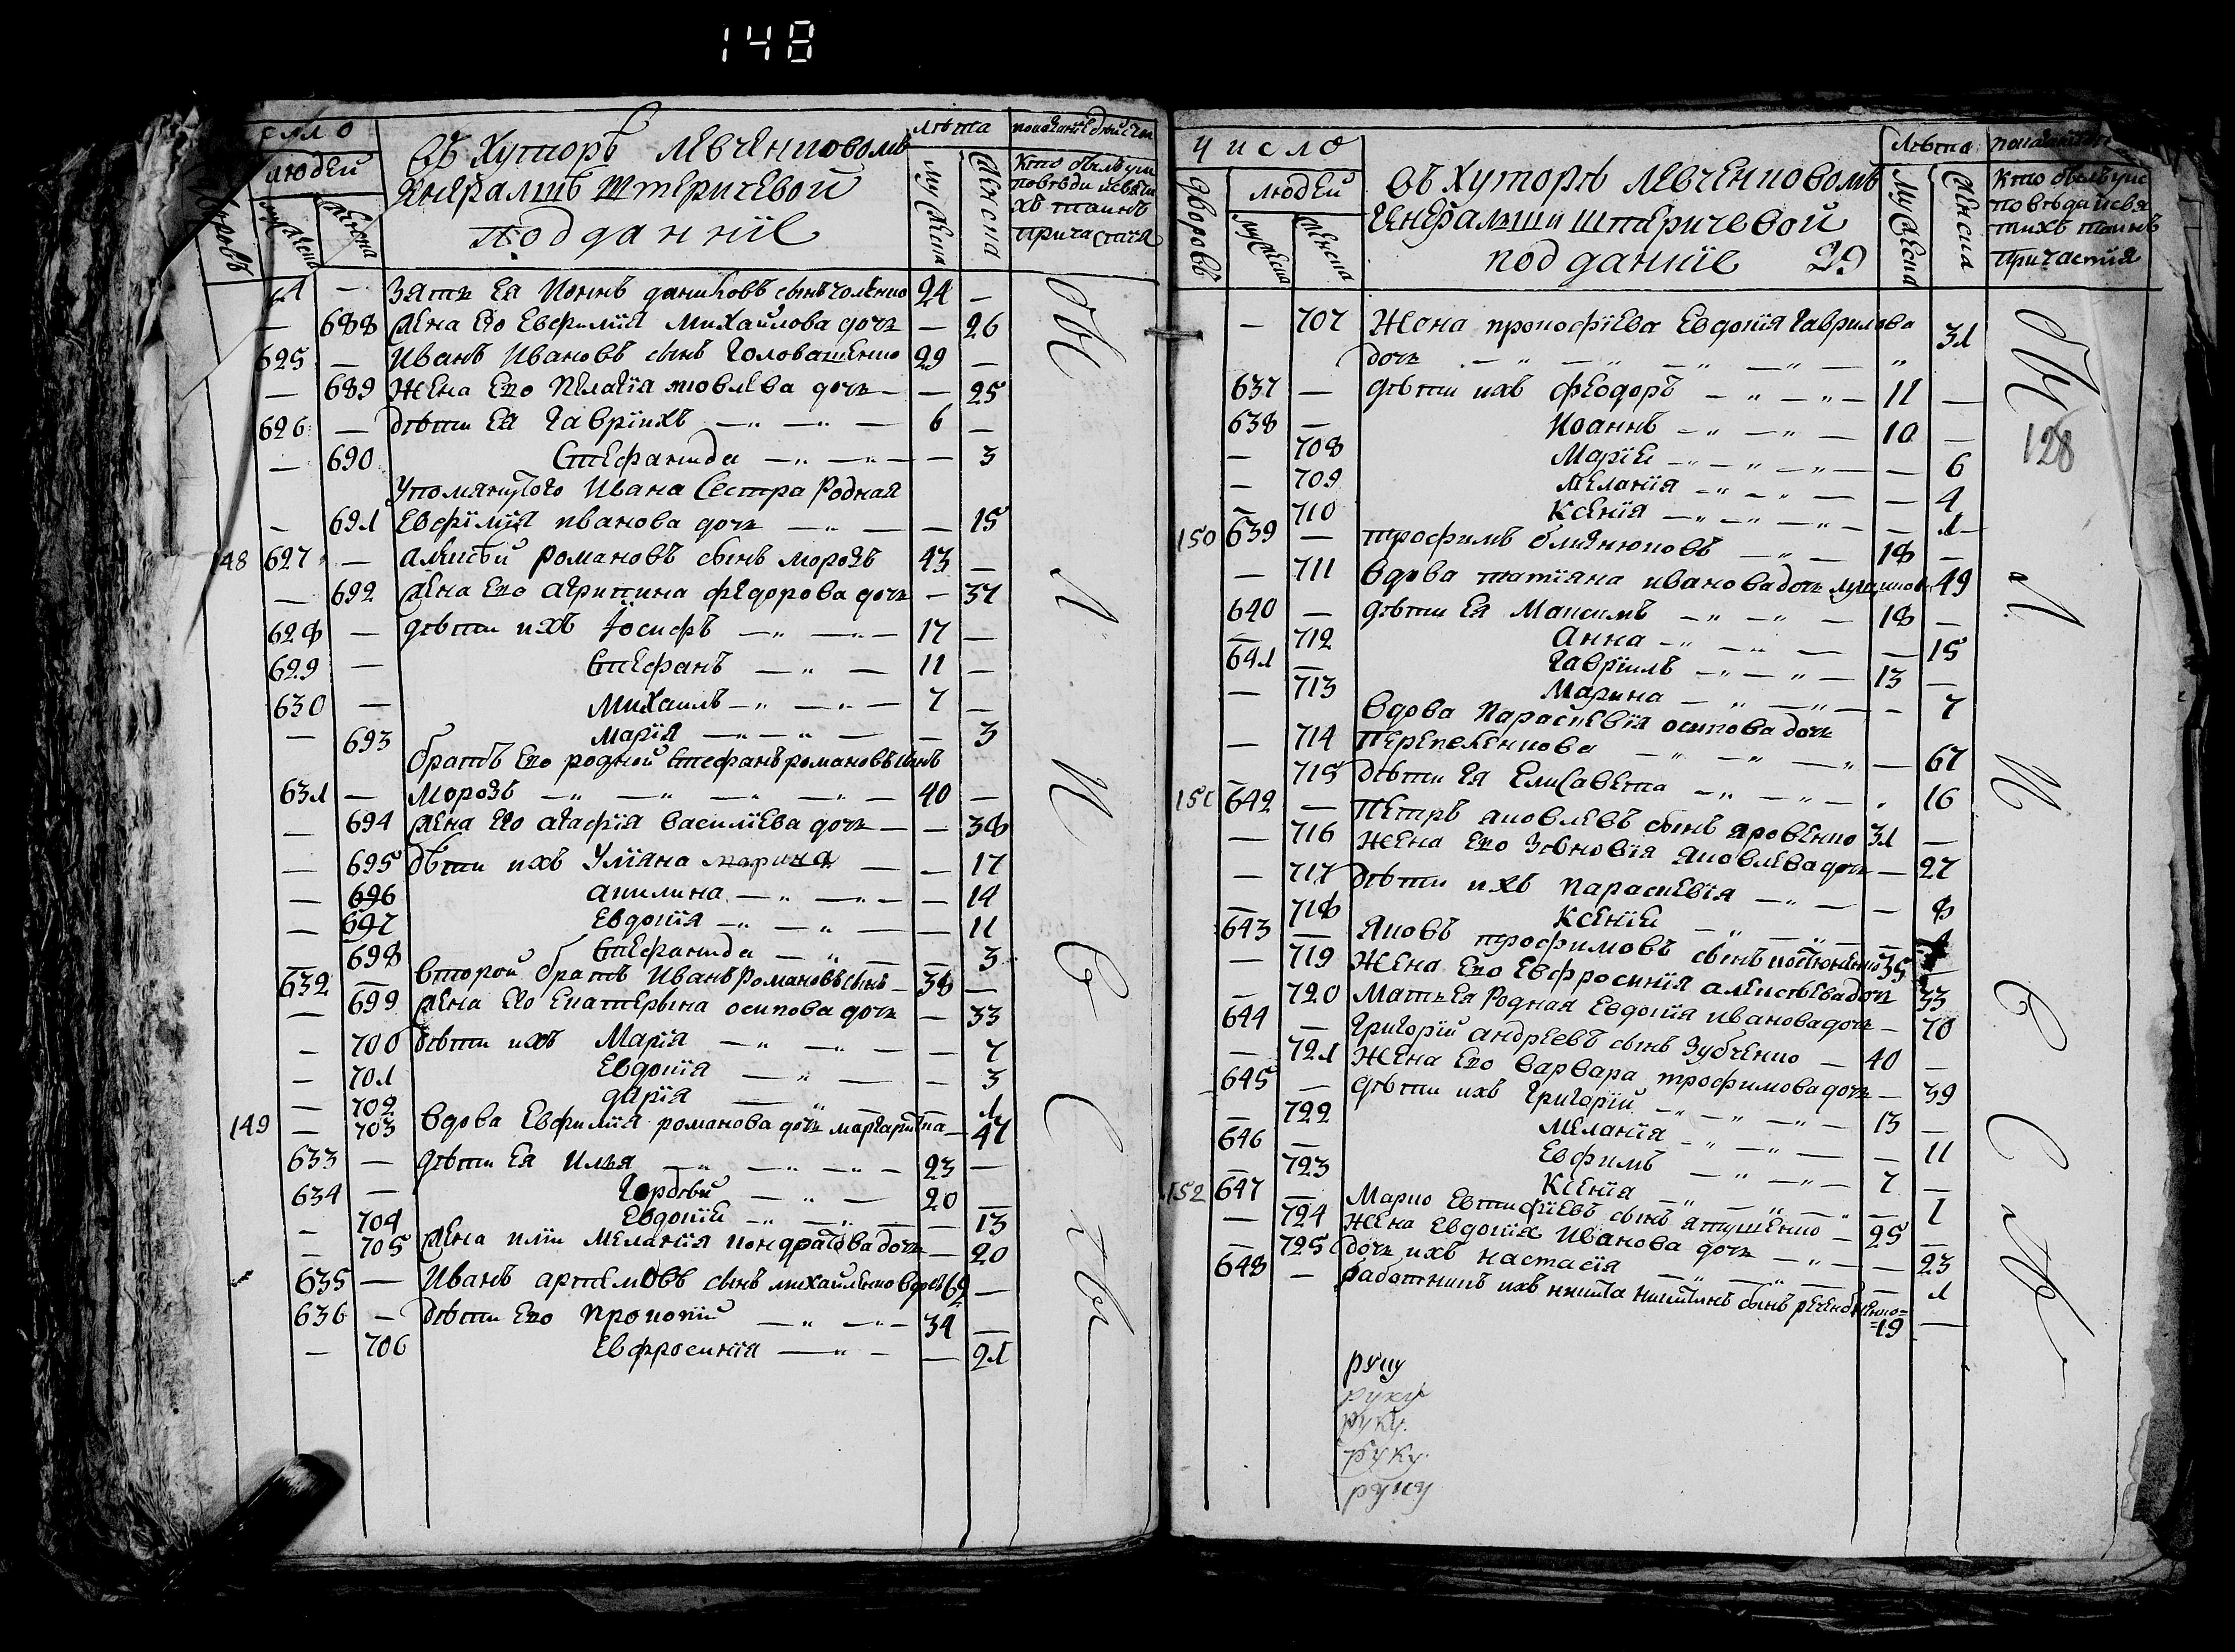 148
число
людей
дворовъ
мужеска
женска
въ Хуторѣ Левченковомъ
Генералшѣ Штеричевой
Подданнiе
лѣта
мужеска
женска
показанiе дѣйст
Кто былъ у ис
повѣди исвяты
хъ таинъ
причастiя
– зять Ея Иоаннъ даниловъ сынъ 24 –
– 688 жена Его Евфимiя Михайлова дочь – 26
625 – Иванъ Ивановъ сынъ Головатенко 29 –
– 689 Жена Его Пелагiя яковлева дочь – – 25
626 – дѣти Ея Гаврiилъ – „ – „ – 6 –
– 690 Стефанида – „ – „ – – 3
Упомянутого Ивана Сестра Родная
– 691 Евфимiя иванова дочь – „ – – 15
148 627 – алексѣй романовъ сынъ морозъ 43 –
– 692 жена Его агрипина федорова дочь – 37
628 – дѣти ихъ Iосифъ – „ – „ – 17 –
629 – Стефанъ – „ – 11 –
630 – Михаилъ – „ – „ – 7 –
– 693 Марiя – „ – „ – – 3
братъ Его родной Стефанъ романовъ сынъ
631 – Морозъ – „ – „ – „ – „ – 40 –
– 694 жена Его агафiя василiева дочь – – 38
– 695 дѣти ихъ Улiана марина – – 17
– 696 акилина – „ – „ – – 14
– 697 Евдокiя – „ – „ – – 11
– 698 Стефанида – „ – – 3
632 – второй братъ Иванъ Романовъ сынъ – 38 –
– 699 жена Его Екатерина осипова дочь – 33
– 700 дѣти ихъ Марiя – „ – „ – – 7
– 701 Евдокiя – „ – – 3
– 702 дарiя – „ – – 1
149 – 703 вдова Евфимiя романова дочь – 47
633 – дѣти Ея Илья – „ – „ – „ – 23 –
634 – Гордѣй – „ – 20 –
– 704 Евдокiи – „ – „ – – 13
– 705 жена илiи Меланiя кондратова дочь – 20
635 – Иванъ артемовъ сынъ михайленко вдовъ 69 –
636 – дѣти Его Прокопiй – „ – „ – 34 –
– 706 Евфросинiя – „ – – 21
Были
И
С
П
О
число
дворовъ
людей
мужеска
женска
въ Хуторѣ Левченковомъ
Генералши Штеричевой
подданнiе 29
Лѣта
мужеска
женска
показанiе
Кто былъ у ис
повѣди исвя
тихъ таинъ
Причастiя
128
– 707 Жена прокофiева Евдокiя гаврилова
дочь – „ – „ – „ – „ – „ 31
637 – дѣти ихъ феодоръ – „ – „ – 11 –
638 – Иоаннъ – „ – „ – 10 –
– 708 Марiи – „ – „ – „ – – 6
– 709 Меланiя – „ – „ – – 4
– 710 Ксенiя – „ – „ – „ – – 1
150 639 – трофимъ – „ – 18 –
– 711 вдова татiана иванова дочь 49
640 – дѣти Ея Максимъ – „ – „ – 18 –
– 712 Анна – „ – „ – – 15
641 – Гаврiилъ – „ – „ – 13 –
– 713 Марина – „ – „ – – 7
вдова Параскевiя осипова дочь
– 714 Перепеленкова – „ – „ – „ – 67
– 715 дѣти Ея Елисавета – „ – „ – „ 16
151 642 – Петръ яковлевъ сынъ яровенко 31 –
– 716 Жена Его Зѣновiя яковлева дочь – 27
– 717 дѣти ихъ Параскевiя – „ – – 8
– 718 Ксенiи – „ – „ – –
643 – Яковъ трофимовъ сынъ 35 –
– 719 Жена Его Евфросинiя алексѣева дочь 33
– 720 Мать Ея Родная Евдокiя иванова дочь – 70
644 – Григорiй андреевъ сынъ Зубченко – 40 –
– 721 Жена Его Варвара трофимова дочь – 39
645 – дѣти ихъ Григорiй – „ – „ – „ – 13 –
– 722 Меланiя – „ – „ – – 11
646 – Евфимъ – „ – „ – 7 –
– 723 Ксенiя – „ – „ – „ – 1
152 647 – Марко Евтифiевъ сынъ 25 –
– 724 Жена Евдокiя Иванова дочь – „ – – 23
– 725 дочь ихъ настасiя – „ – „ – – 1
648 – работникъ ихъ никита никитинъ сынъ
19 –
руку
руку
руку.
руку.
руку